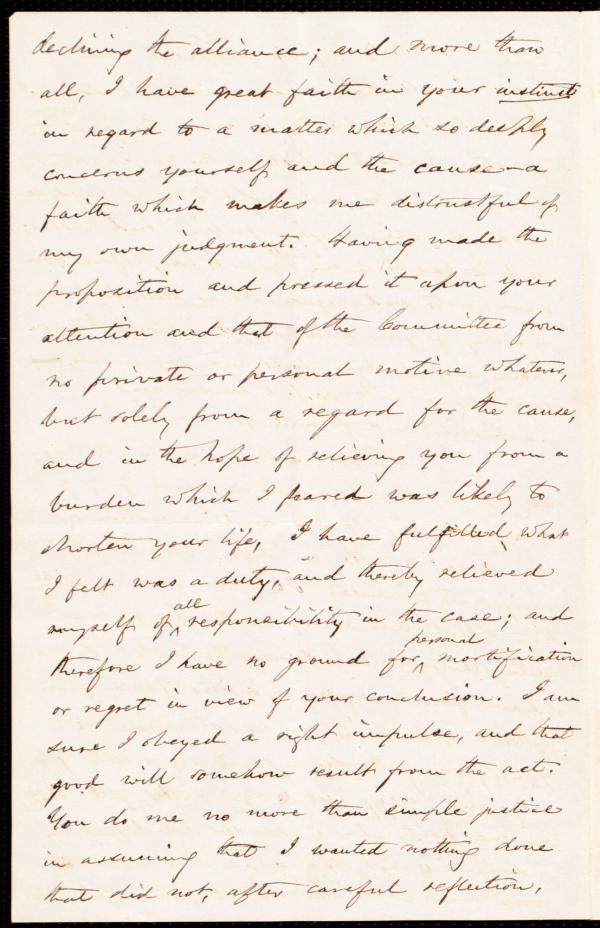 declining the alliance; and more than
all, I have great faith in your instincts
in regard to a matter which so deeply
concerns yourself and the cause—a
faith which makes me distrustful of
my own judgment. Having made the
proposition and pressed it upon your
attention and that of the Committee from
no private or personal motive whatever,
but solely from a regard for the cause,
and in the hope of relieving you from a
burden which I feared was likely to
shorten your life, I have fulfilled what
I felt was a duty, and thereby relieved
myself of all responsibility in the case; and
therefore I have no ground for personal mortification
or regret in view of your conclusion. I am
sure I obeyed a right impulse, and that
good will somehow result from the act.
You do me no more than simple justice
in assuming that I wanted nothing done
that did not, after careful reflection,